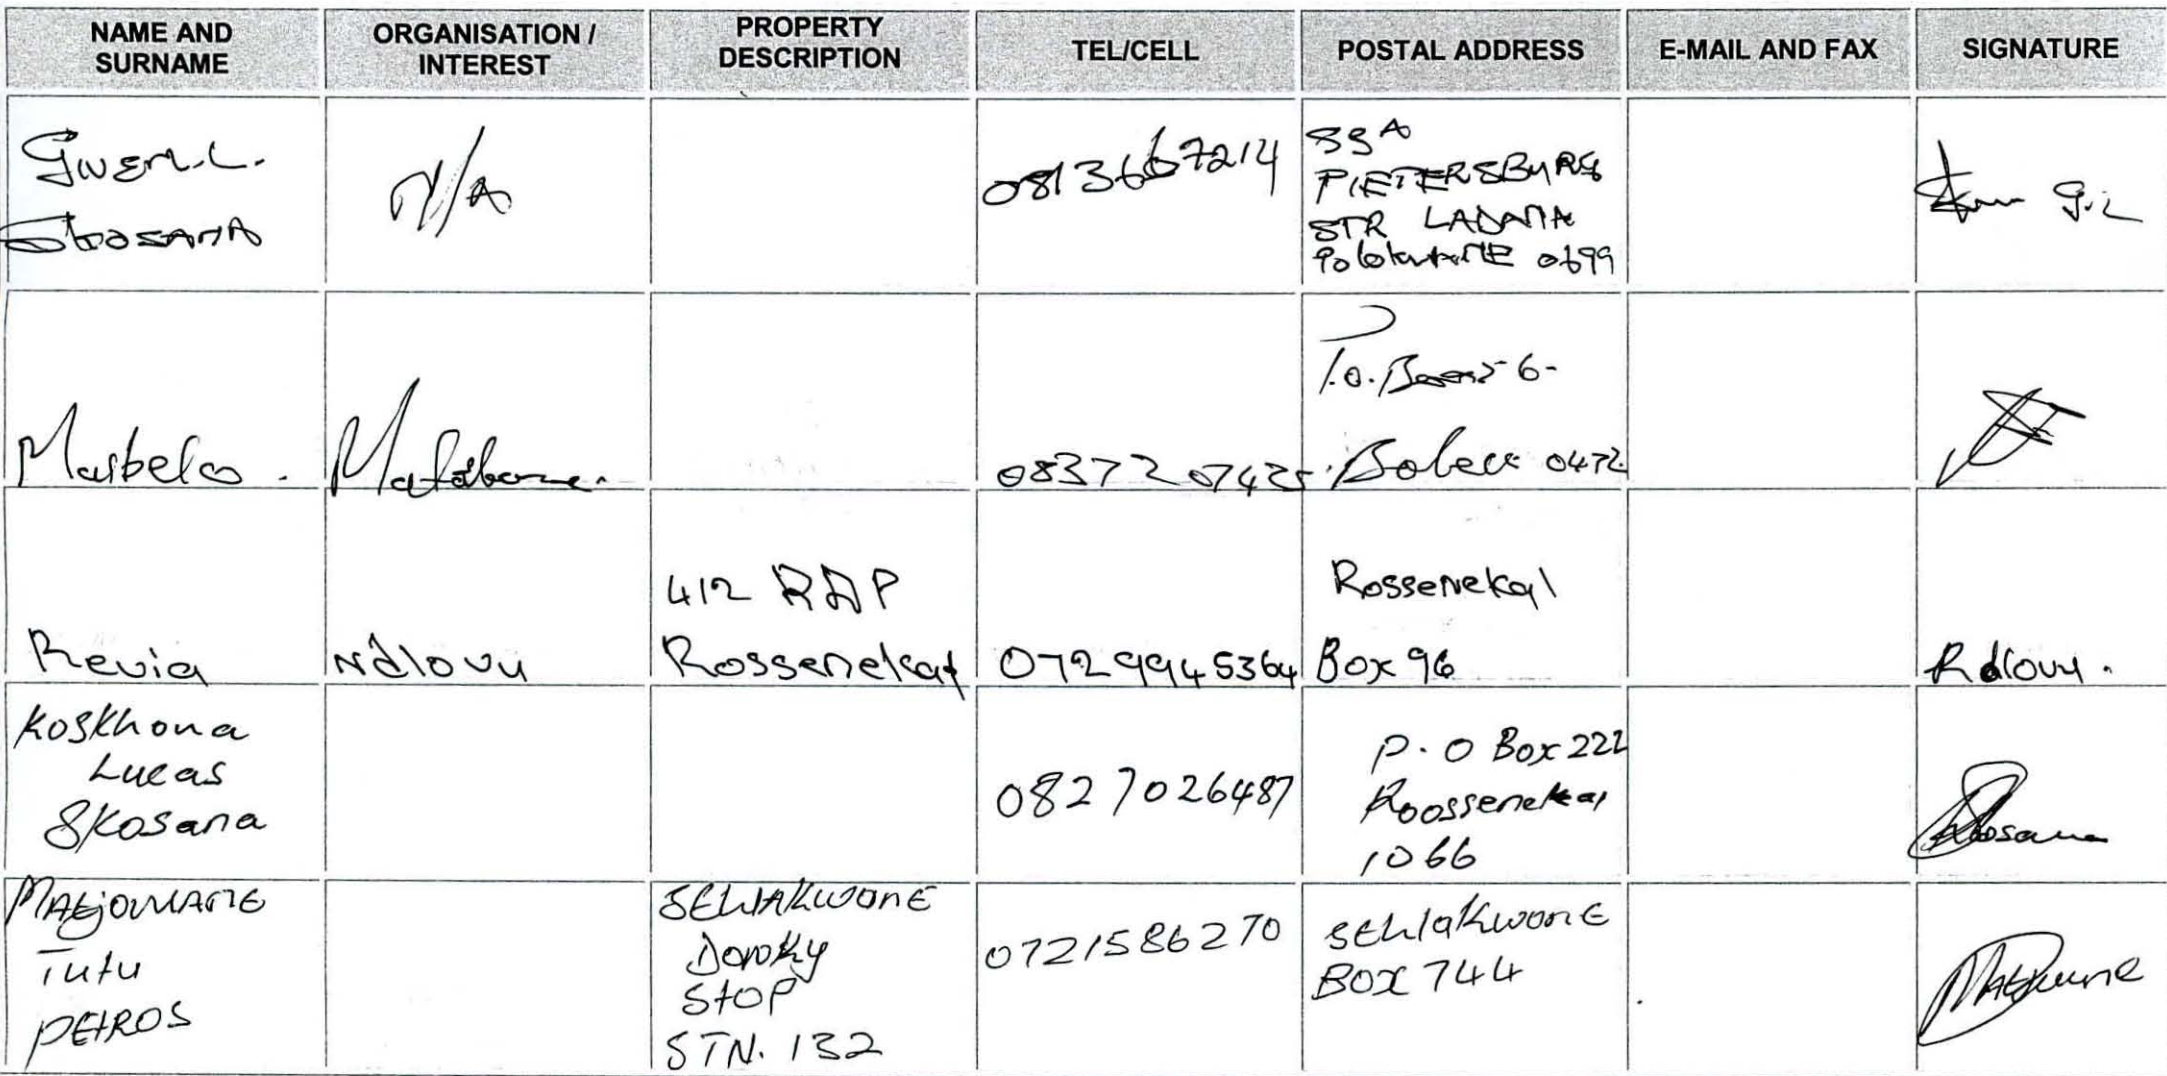 NAME AND SURNAME
ORGANISATION / INTEREST
PROPERTY DESCRIPTION
TEL/CELL
POSTAL ADDRESS
E-MAIL AND FAX
SIGNATURE
N/A
0813667214
PIETERSBURG
STR LADANNA
0699
P.O.
6-
0837207425
0472
Revia
Ndlovu
412 RDP
Rossenekal
0729945364
Rossenekal
Box 96
Rdlovu.
Koskhona
Lucas
Skosana
0827026487
P.O Box 222
Roossenekal
1066
Skosana
Tutu
PETROS
SEHlAKWANE
Stop
STN. 132
0721586270
SEHlAKWANE
BOX 744